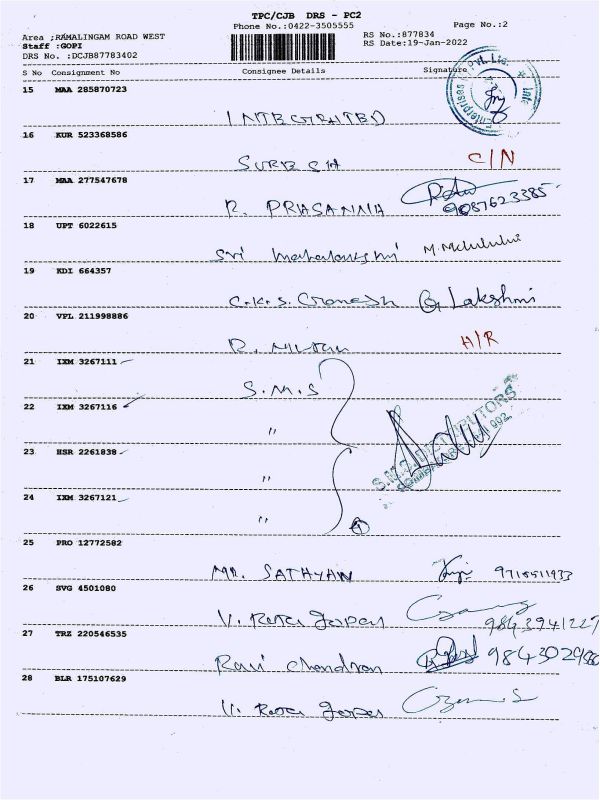 TPC/CJB DRS - PC2
Phone No.:0422-3505555 Page No.:2
Area ;RAMALINGAM ROAD WEST RS No.:877834
Staff :GOPI RS Date:19-Jan-2022
DRS No. :DCJB87783402
S No Consignment No Consignee Details Signature
15 MAA 285870723
INTEGRATED
16 KUR 523368586
SURESH C/N
17 MAA 277547678
R. PRASANNA 9087623385
18 UPT 6022615
Sri Mahalakshmi
19 KDI 664357
C.K.S. Ganesh G Lakshmi
20 VPL 211998886
R. H/R
21 IXM 3267111
S.M.S
22 IXM 3267116
"
23 HSR 2261838
"
24 IXM 3267121
"
S.M.S DISTRIBUTORS
25 PRO 12772582
MR. SATHYAN
26 SVG 4501080
V. Raja Gopal 9843941227
27 TRZ 220546535
Ravi Chandran
28 BLR 175107629
V. Raja Gopal